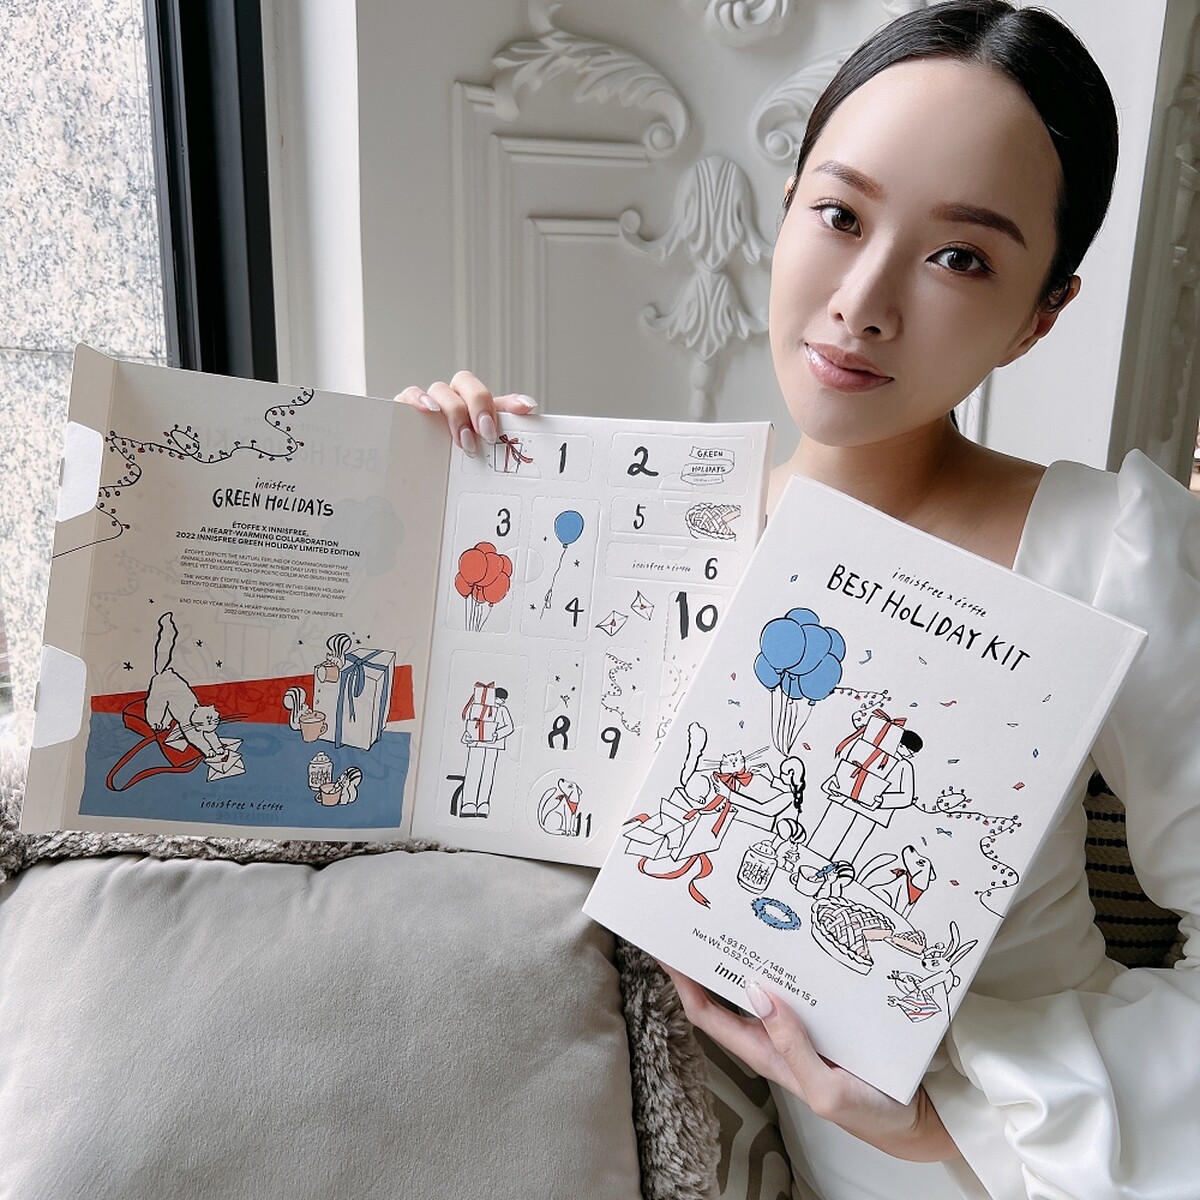 innisfree
GREEN HOLIDAYS
ÉTOFFE X INNISFREE,
A HEART-WARMING COLLABORATION
2022 INNISFREE GREEN HOLIDAY LIMITED EDITION
ÉTOFFE DEPICTS THE MUTUAL FEELING OF COMPANIONSHIP THAT
ANIMALS AND HUMANS CAN SHARE IN THEIR DAILY LIVES THROUGH ITS
SIMPLE YET DELICATE TOUCH OF POETIC COLOR AND BRUSH STROKES.
THE WORK BY ÉTOFFE MEETS INNISFREE IN THIS GREEN HOLIDAY
EDITION TO CELEBRATE THE YEAR-END WITH EXCITEMENT AND FAIRY
TALE HAPPINESS.
END YOUR YEAR WITH A HEART-WARMING GIFT OF INNISFREE'S
2022 GREEN HOLIDAY EDITION.
innisfree x étoffe
1
2
GREEN
HOLIDAYS
3
4
5
innisfree x étoffe 6
10
7
8
9
11
innisfree x étoffe
BEST HOLIDAY KIT
4.93 Fl. Oz. / 148 mL
Net Wt. 0.52 Oz. / Poids Net 15 g
innis